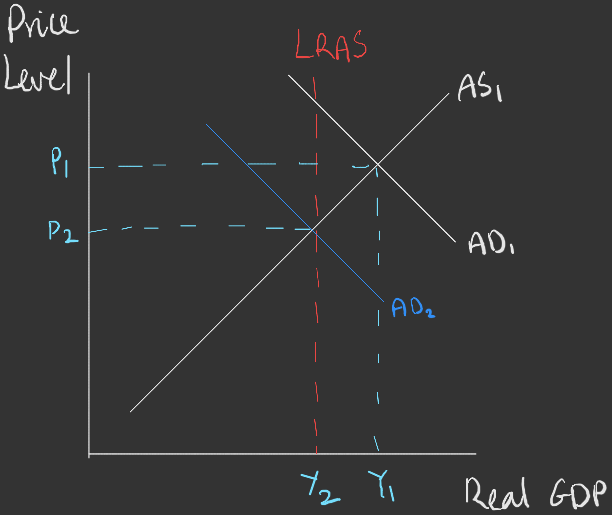 Price
Level
LRAS
AS₁
P₁
P₂
AD₁
AD₂
Y₂
Y₁
Real GDP